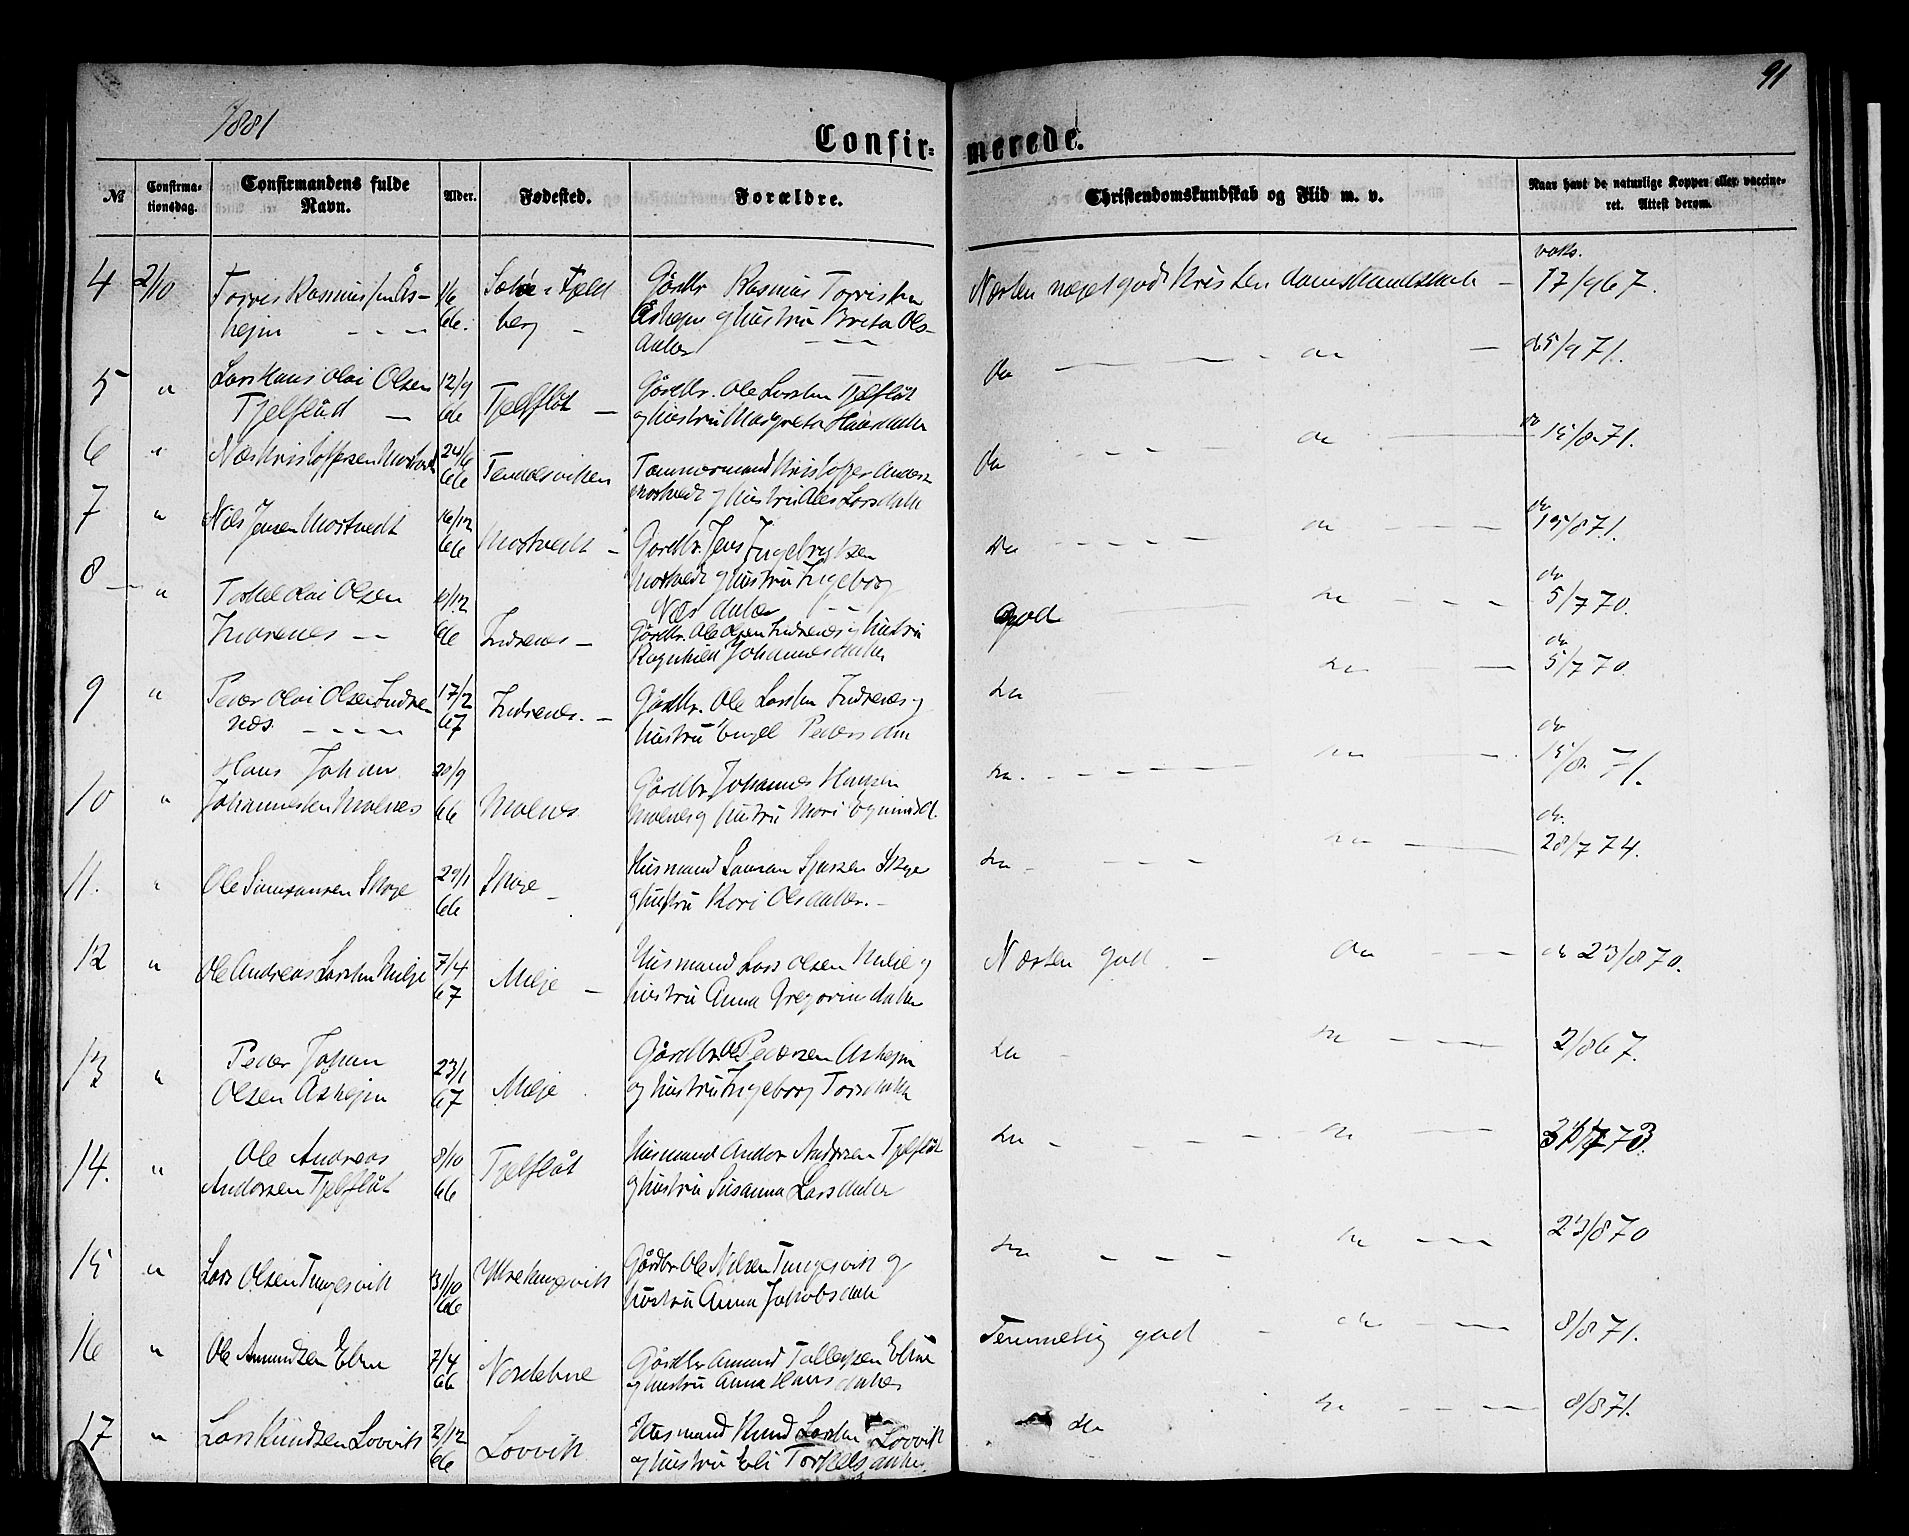 91
1881
Confir=merede.
№ Confirma-tionsdag. Confirmandens fulde Navn. Alder. Fødested. Forældre. Christendomskundskab og Flid m. v. Naar havt de naturlige Kopper eller vaccineret. Attest derom.
4 2/10 Torris Rasmussen Ås-
hejm 66. Gårdbr Rasmus Torrisen
Åshejm og hustru Brita Ols-
datter
Næsten meget god Kristendomskundskab - vaks. 17/9 67.
5 " Lars Hans Olai Olsen 12/9
Tjelflåd 66 Tjelflåt Gårdbr. Ole Larsen Tjelflåt
og hustru Margreta Hansdatter
do do do 5/9 71.
6 " Kristoffersen 24/6
66 Tømmermand Kristoffer
og hustru Larsdatter
do do do 15/8 71.
7 " Nils Jensen Mostvedt 16/12
66 Mostvedt Gårdbr. Jens Ingebrigtsen
Mostvedt og hustru Ingeborg
Næsdatter
do do do 15/8 71.
8 " Torkel Olai Olsen
Indrenes 66 Indrenes Gårdbr. Ole Olsen Indrenes og hustru
Ragnhild Johannesdatter
god do do 5/7 70.
9 " Peder Olai Olsen Indre-
næs 17/2
67 Indrenes. Gårdbr. Ole Larsen Indrenes og
hustru Engel Pedersdtr
do do do 5/7 70.
10 " Hans Johan 20/9
Johannessen Molnes 66 Molnes Gårdbr Johannes Hansen
Molnes og hustru
do do do 15/8 71.
11. " Ole Samsonsen Skoge 29/1
66 Skoge Husmand Samson Skoge
og hustru Kari Olsdatter.
do do do. 28/7 74.
12 " Ole Andreas Larsen Milje 7/4
67 Milje Husmand Lars Olsen Milje og
hustru Anna Gregoriusdatter
Næsten god do do 23/8 70.
13 " Peder Johan 23/1
Olsen Åshejm 67 Milje Gårdbr. Ole Pedersen Åshejm
og hustru Ingeborg Torsdatter
do do 2/8 67.
14. " Ole Andreas 8/10
Andersen Tjelflåt 66 Tjelflåt Husmand Anders Andersen Tjelflåt
og hustru Susanna Larsdatter
do do
15 " Lars Olsen Tungesvik 31/10
66 Ytre Tungesvik Gårdbr Ole Nilsen Tungesvik og
hustru Anna Jakobsdatter
do do 23/8 70
16 " Ole Amundsen Ebne 7/4
66 Nordebne Gårdbr Amund Tollefsen Ebne
og hustru Anna Hansdatter
Temmelig god do 8/8 71.
17 " Lars Knudsen Lovvik 2/12
66 Lovvik Husmand Knud Larsen Lovvik
og hustru Eli Torkelsdatter
do do 8/8 71.